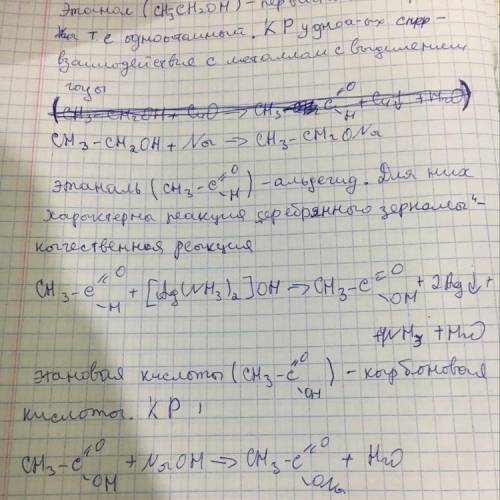 Этанол (CH₃CH₂OH) -
т.е одноатомный. КР
взаимодействие с металлам с выделением
CH₃-CH₂OH + CuO → CH₃-C=O-H + Cu↓ + H₂O
CH₃-CH₂OH + Na → CH₃-CH₂ONa
этаналь (CH₃-C=O-H) - альдегид. Для них
характерны реакция "серебрянного
реакция
CH₃-C=O-H + [Ag(NH₃)₂]OH → CH₃-C=O-OH + 2Ag↓ +
+NH₃ + H₂O
этановая кислоты (CH₃-C=O-OH) - карбоновая
кислоты. КР
CH₃-C=O-OH + NaOH → CH₃-C=O-ONa + H₂O